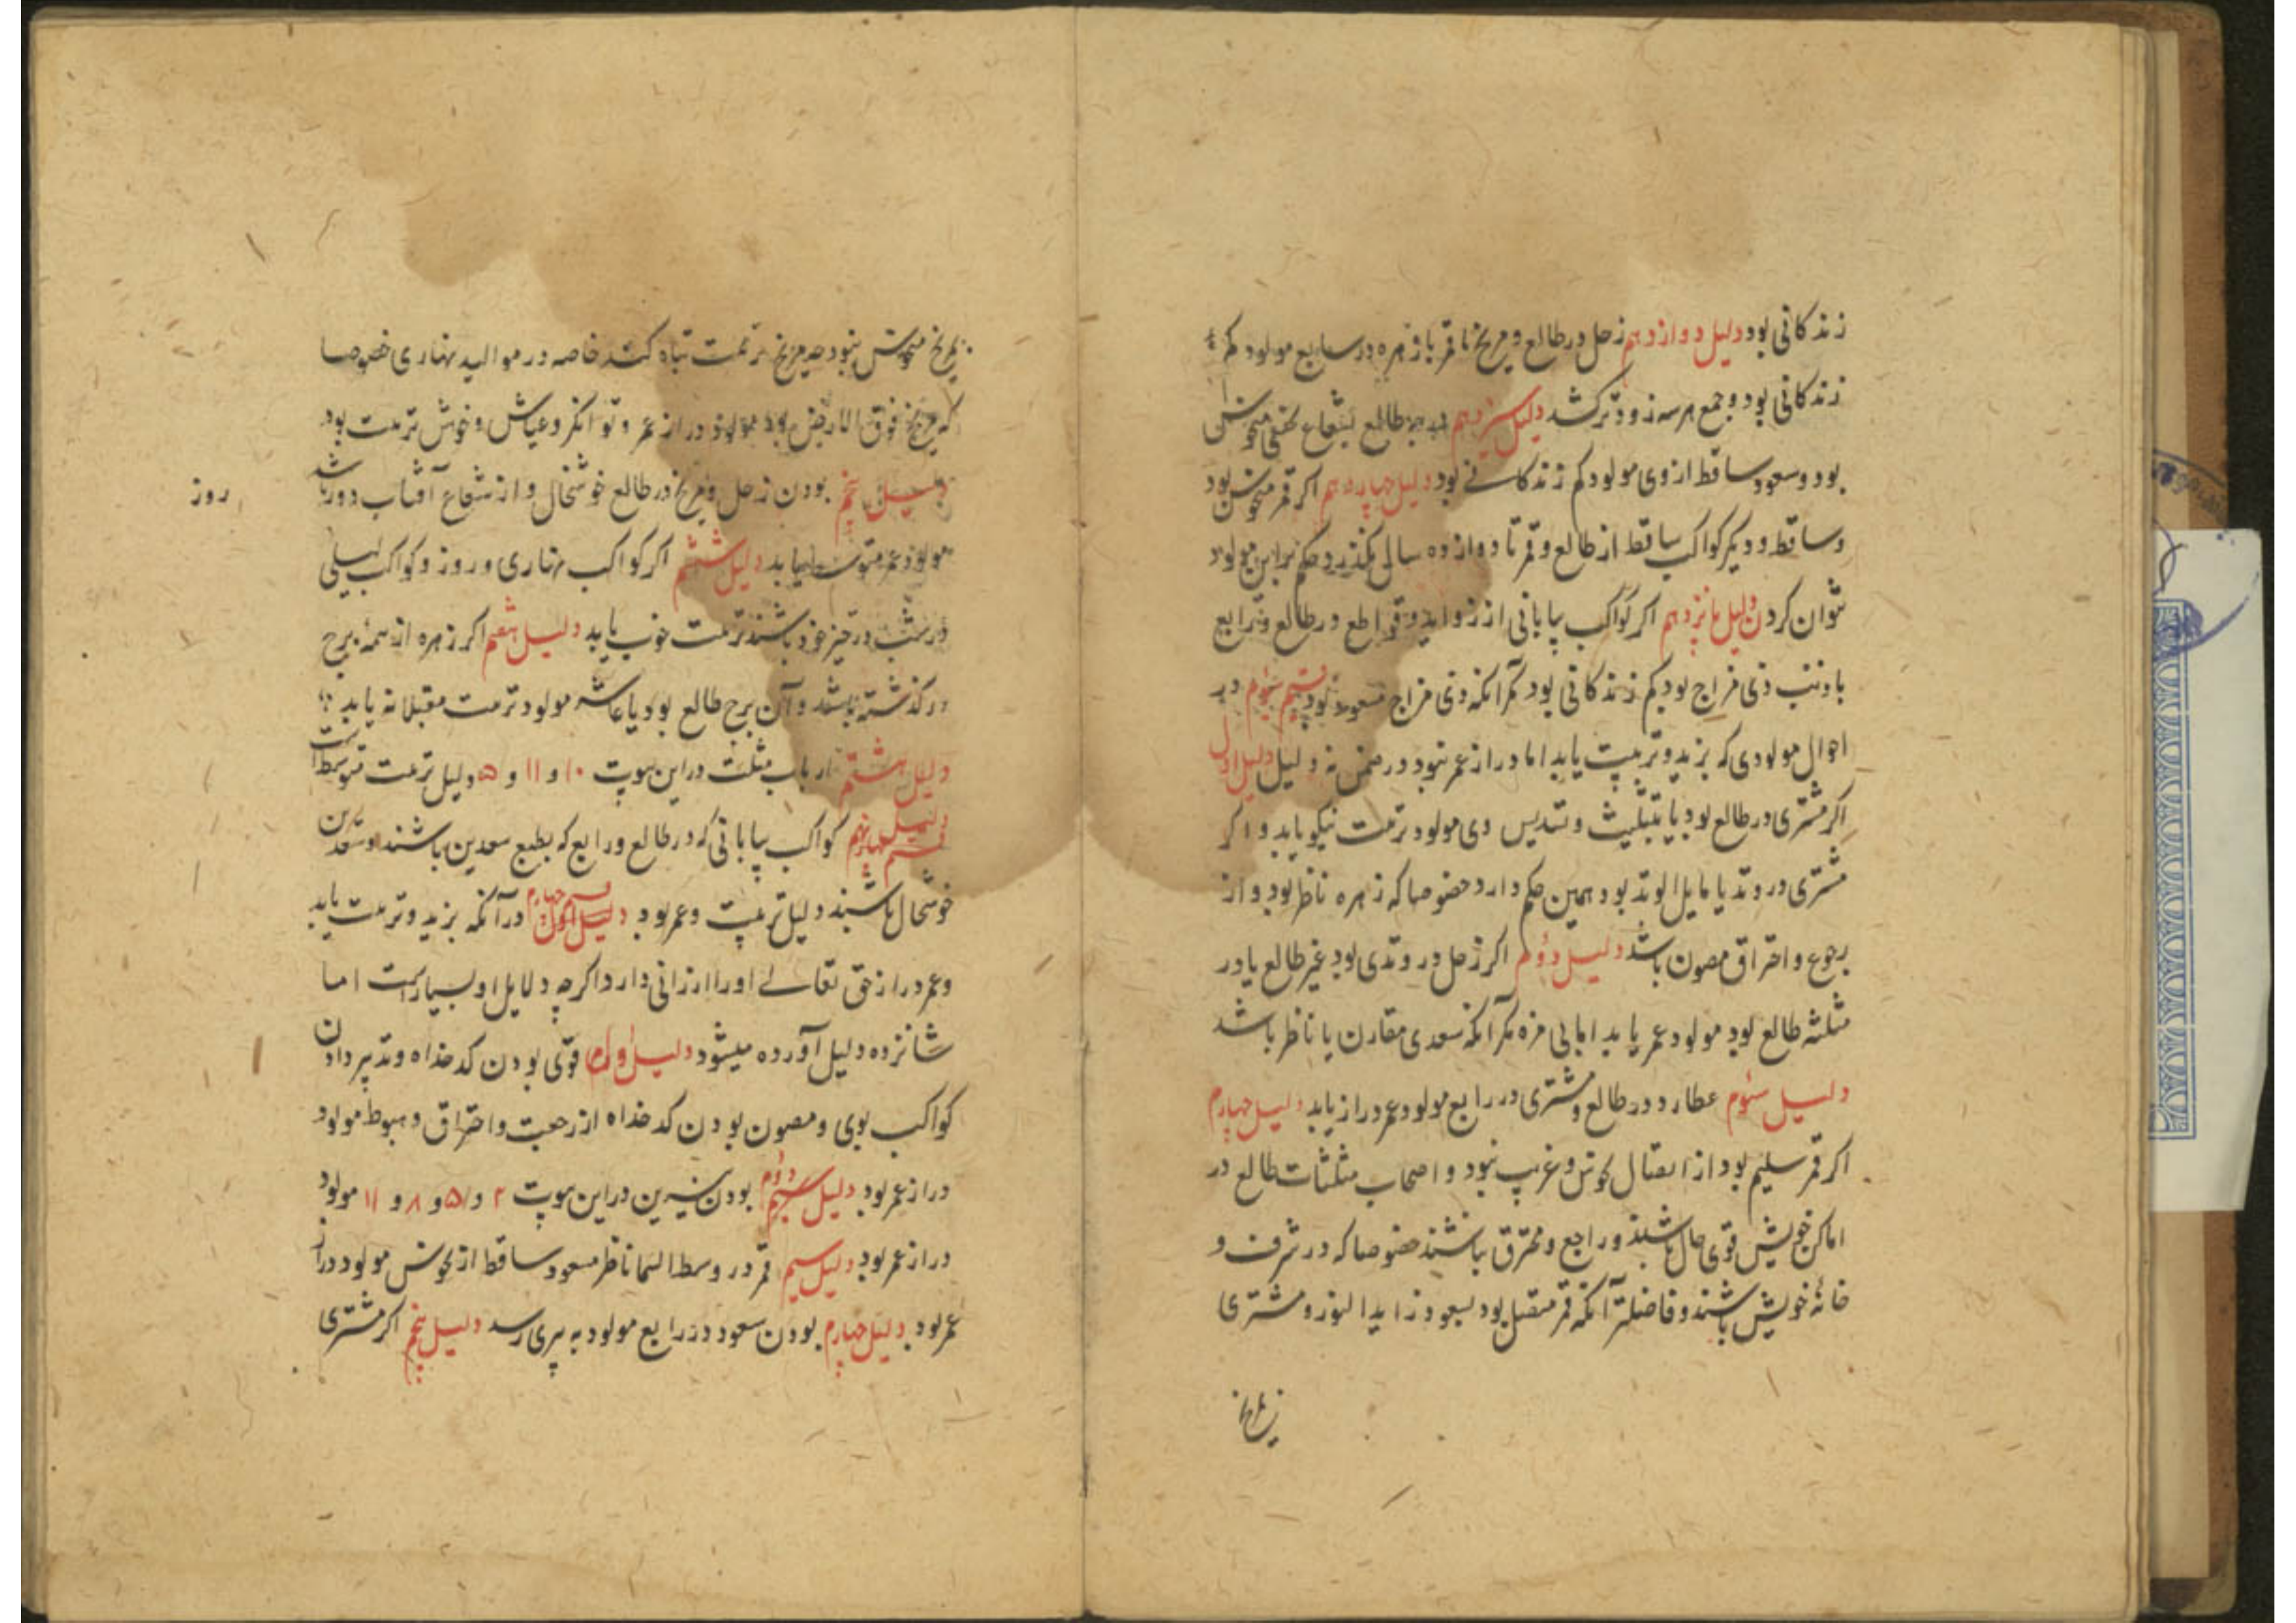 زندکانی بود دلیل دوازدهم زحل در طالع و مریخ با قمر یا زهره در سابع مولود کم
زندکانی بود و جمع هر سه زودتر کشد دلیل سیزدهم طالع بشعاع نحسی منحوس
بود و سعود ساقط از وی مولود کم زندکانی بود دلیل چهاردهم اکر قمر منحوس بود
و ساقط و دیکر کواکب ساقط از طالع و قمر تا دوازده سال نکذرد حکم بر این مولود
نتوان کردن دلیل پانزدهم اکر کواکب بیابانی از زواید و قواطع در طالع و رابع
با ذنب ذی مزاج بود کم زندکانی بود مکر آنکه ذی مزاج مسعود بود قسم سوم در
احوال مولودی که بزید و تربیت یابد اما دراز عمر نبود در ضمن نه دلیل دلیل اول
اکر مشتری در طالع بود یا بتثلیث و تسدیس وی مولود تربیت نیکو یابد و اکر
مشتری در وتد یا مایل الوتد بود همین حکم دارد خصوصا که زهره ناظر بود و از
رجوع و احتراق مصون باشد دلیل دوم اکر زحل در وتدی بود غیر طالع یا در
مثلثه طالع بود مولود عمر یابد اما بی مزه مکر آنکه سعدی مقارن یا ناظر باشد
دلیل سوم عطارد در طالع و مشتری در رابع مولود عمر دراز یابد دلیل چهارم
اکر قمر سلیم بود از اتصال نحوس و غریب نبود و اصحاب مثلثات طالع در
اماکن خویش قوی حال باشند و راجع و محترق نباشند خصوصا که در شرف و
خانه خویش باشند و فاضلتر آنکه قمر متصل بود بسعود زاید النور و مشتری
ز مریخ
ز مریخ منحوس نبود چه مریخ تربیت تباه کند خاصه در موالید نهاری خصوصا
که مریخ فوق الارض بود مولود دراز عمر و توانکر و عیاش و خوش تربیت بود
دلیل پنجم بودن زحل و مریخ در طالع خوشحال و از شعاع آفتاب دور باشد
روز
مولود عمر متوسط یابد دلیل ششم اکر کواکب نهاری در روز و کواکب لیلی
در شب در حیز خود باشند تربیت خوب یابد دلیل هفتم اکر زهره از همه برج
در کذشته باشد و آن برج طالع بود یا عاشر مولود تربیت مقبلانه یابد
دلیل هشتم ارباب مثلثه در این بیوت ۱۰ و ۱۱ و ۵ دلیل تربیت متوسط است
دلیل نهم کواکب بیابانی که در طالع و رابع که بطبع سعدین باشند و سعدین
خوشحال باشند دلیل تربیت و عمر بود قسم چهارم در آنکه بزید و تربیت یابد
و عمر دراز حق تعالی او را ارزانی دارد اکرچه دلایل او بسیار است اما
شانزده دلیل آورده میشود دلیل اول قوی بودن کدخداه و تدبیر دادن
کواکب بوی و مصون بودن کدخداه از رجعت و احتراق و هبوط مولود
دراز عمر بود دلیل دوم بودن نیرین در این بیوت ۲ و ۵ و ۸ و ۱۱ مولود
دراز عمر بود دلیل سیم قمر در وسط السما ناظر مسعود ساقط از نحوس مولود دراز
عمر بود دلیل چهارم بودن سعود در رابع مولود به پیری رسد دلیل پنجم اکر مشتری